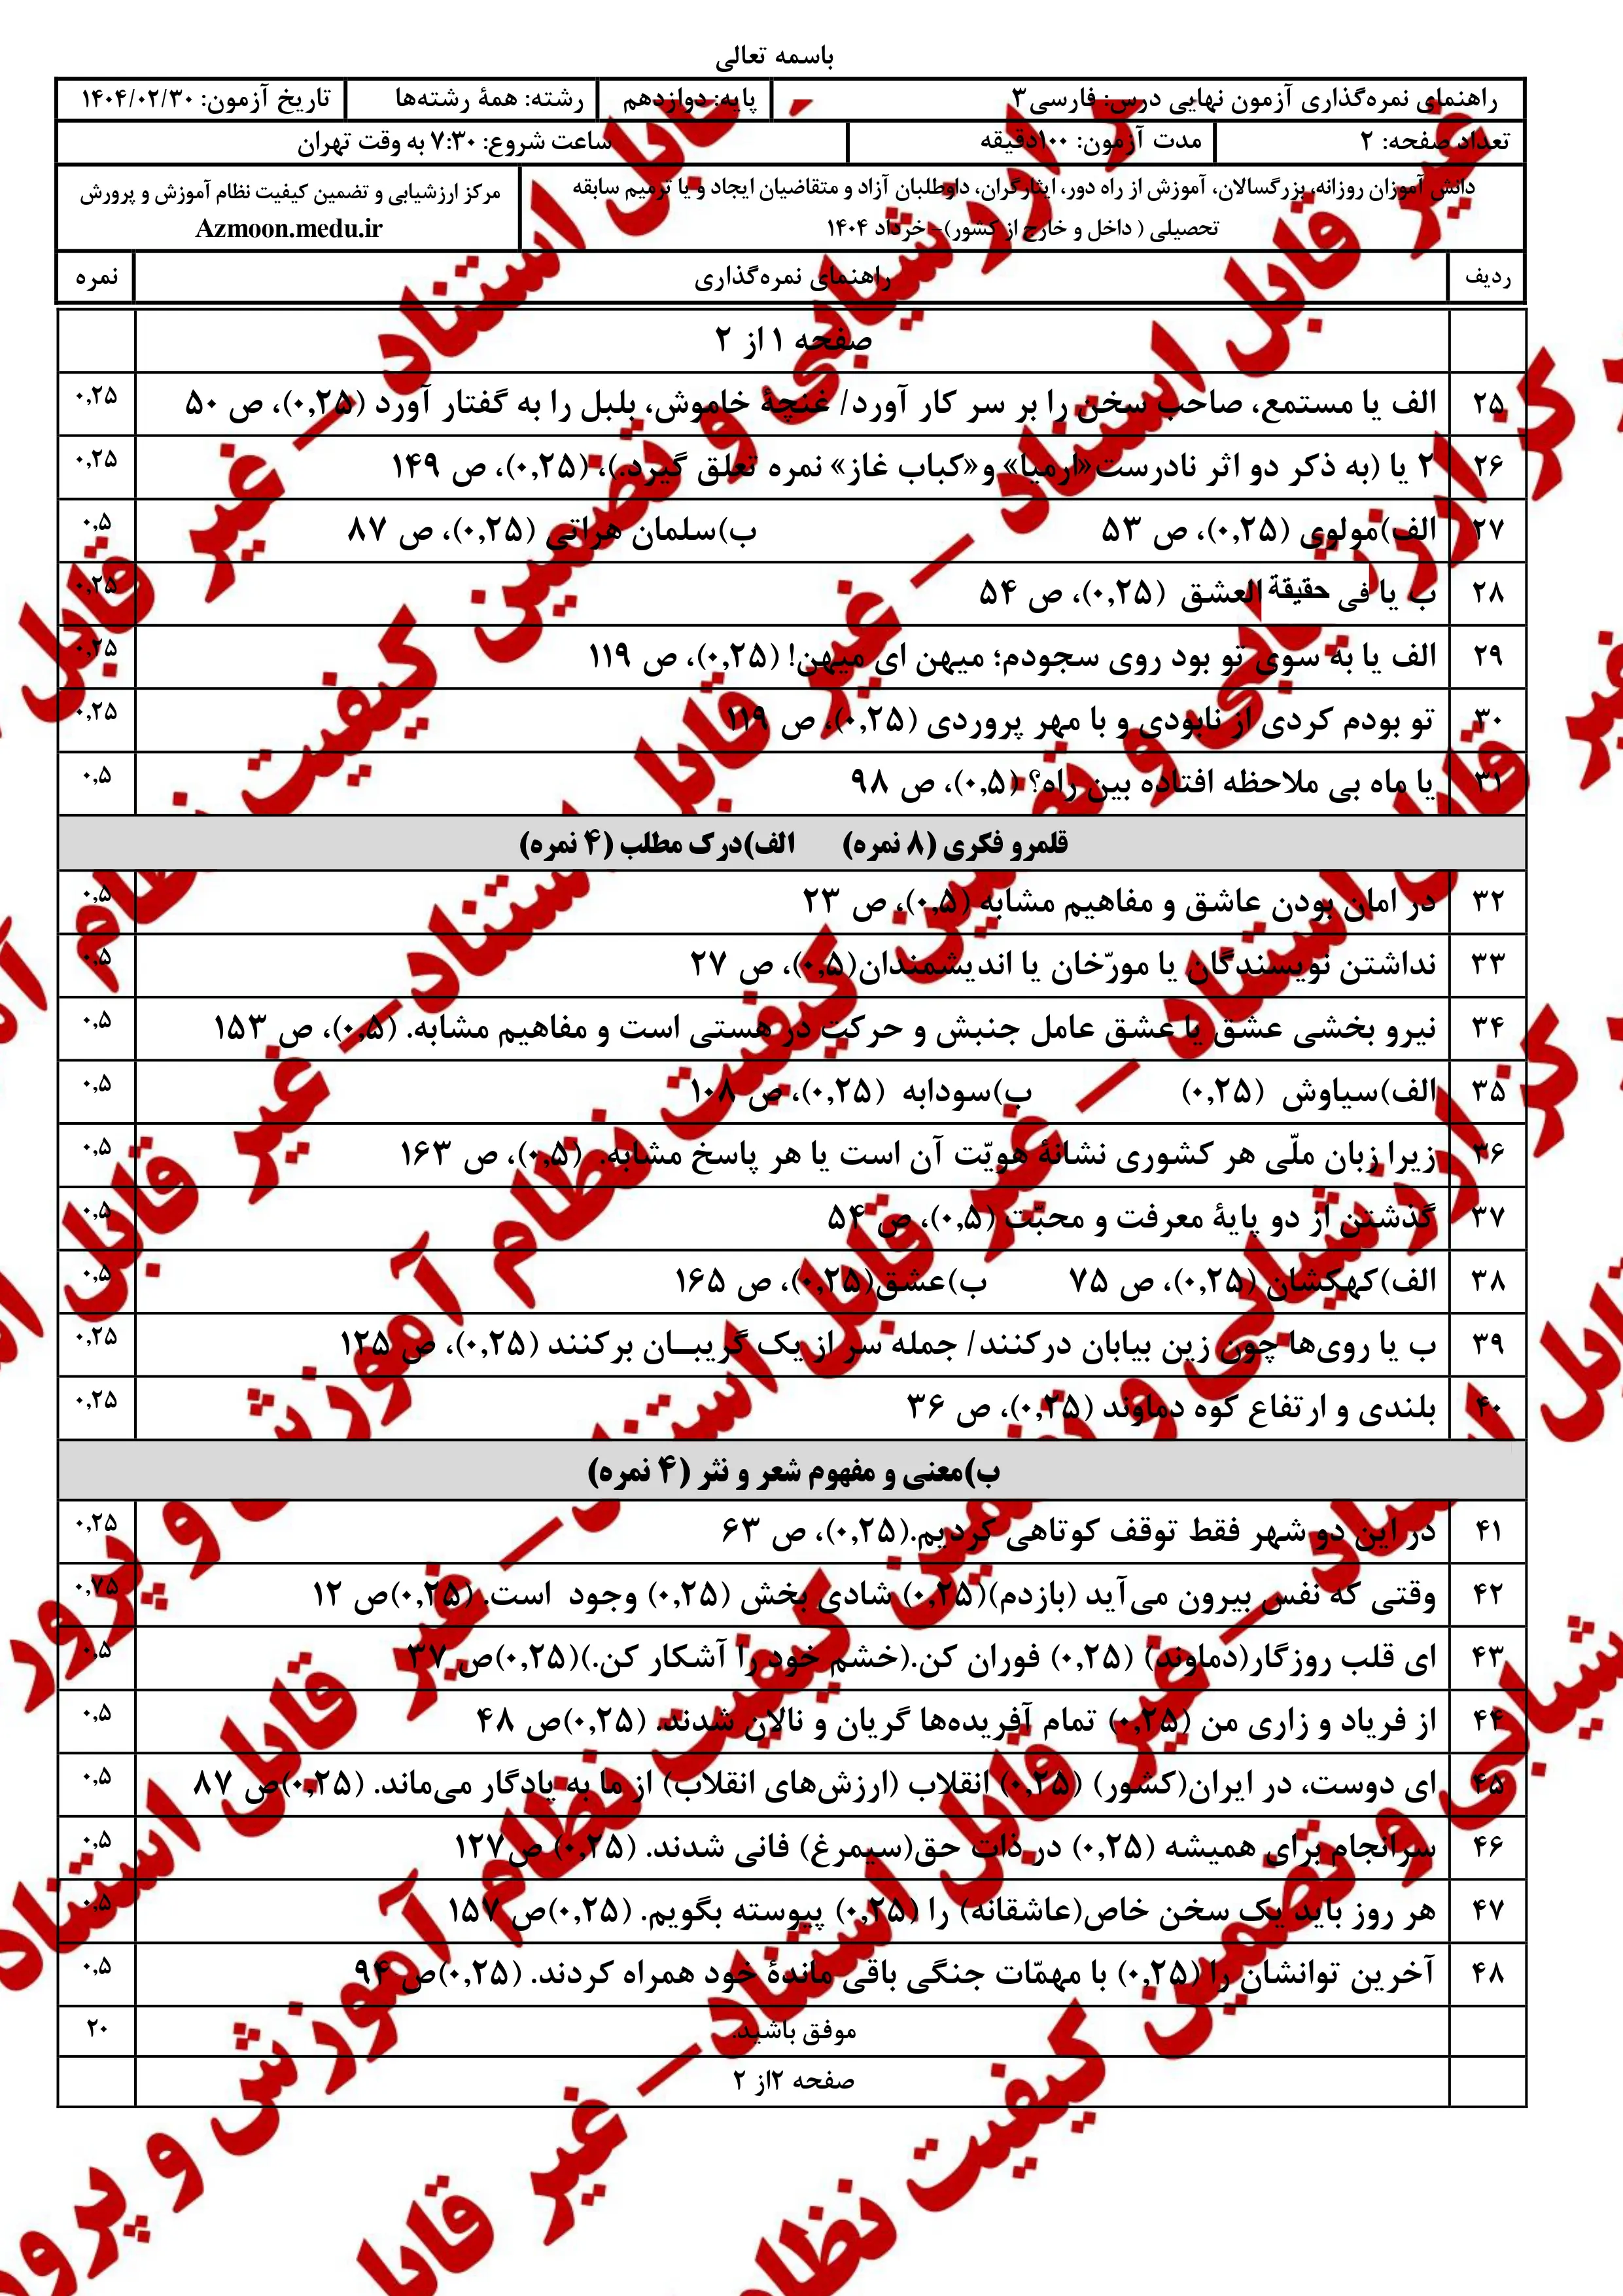 باسمه تعالی
راهنمای نمره‌گذاری آزمون نهایی درس: فارسی۳ پایه: دوازدهم رشته: همۀ رشته‌ها تاریخ آزمون: ۱۴۰۴/۰۲/۳۰
تعداد صفحه: ۲ مدت آزمون: ۱۰۰دقیقه ساعت شروع: ۷:۳۰ به وقت تهران
دانش آموزان روزانه، بزرگسالان، آموزش از راه دور، ایثارگران، داوطلبان آزاد و متقاضیان ایجاد و یا ترمیم سابقه مرکز ارزشیابی و تضمین کیفیت نظام آموزش و پرورش
تحصیلی ( داخل و خارج از کشور)- خرداد ۱۴۰۴ Azmoon.medu.ir
ردیف راهنمای نمره‌گذاری نمره
صفحه ۱ از ۲
۲۵ الف یا مستمع، صاحب سخن را بر سر کار آورد/ غنچۀ خاموش، بلبل را به گفتار آورد (۰,۲۵)، ص ۵۰ ۰,۲۵
۲۶ ۲ یا (به ذکر دو اثر نادرست«ارمیا» و«کباب غاز» نمره تعلق گیرد.)، (۰,۲۵)، ص ۱۴۹ ۰,۲۵
۲۷ الف)مولوی (۰,۲۵)، ص ۵۳ ب)سلمان هراتی (۰,۲۵)، ص ۸۷ ۰,۵
۲۸ ب یا فی حقیقة العشق (۰,۲۵)، ص ۵۴ ۰,۲۵
۲۹ الف یا به سوی تو بود روی سجودم؛ میهن ای میهن! (۰,۲۵)، ص ۱۱۹ ۰,۲۵
۳۰ تو بودم کردی از نابودی و با مهر پروردی (۰,۲۵)، ص ۱۱۹ ۰,۲۵
۳۱ یا ماه بی ملاحظه افتاده بین راه؟ (۰,۵)، ص ۹۸ ۰,۵
قلمرو فکری (۸ نمره) الف)درک مطلب (۴ نمره)
۳۲ در امان بودن عاشق و مفاهیم مشابه (۰,۵)، ص ۲۳ ۰,۵
۳۳ نداشتن نویسندگان یا مورّخان یا اندیشمندان(۰,۵)، ص ۲۷ ۰,۵
۳۴ نیرو بخشی عشق یا عشق عامل جنبش و حرکت در هستی است و مفاهیم مشابه. (۰,۵)، ص ۱۵۳ ۰,۵
۳۵ الف)سیاوش (۰,۲۵) ب)سودابه (۰,۲۵)، ص ۱۰۸ ۰,۵
۳۶ زیرا زبان ملّی هر کشوری نشانۀ هویّت آن است یا هر پاسخ مشابه. (۰,۵)، ص ۱۶۳ ۰,۵
۳۷ گذشتن از دو پایۀ معرفت و محبّت (۰,۵)، ص ۵۴ ۰,۵
۳۸ الف)کهکشان (۰,۲۵)، ص ۷۵ ب)عشق(۰,۲۵)، ص ۱۶۵ ۰,۵
۳۹ ب یا روی‌ها چون زین بیابان درکنند/ جمله سر از یک گریبـان برکنند (۰,۲۵)، ص ۱۲۵ ۰,۲۵
۴۰ بلندی و ارتفاع کوه دماوند (۰,۲۵)، ص ۳۶ ۰,۲۵
ب)معنی و مفهوم شعر و نثر (۴ نمره)
۴۱ در این دو شهر فقط توقف کوتاهی کردیم.(۰,۲۵)، ص ۶۳ ۰,۲۵
۴۲ وقتی که نفس بیرون می‌آید (بازدم)(۰,۲۵) شادی بخش (۰,۲۵) وجود است. (۰,۲۵)ص ۱۲ ۰,۷۵
۴۳ ای قلب روزگار(دماوند) (۰,۲۵) فوران کن.(خشم خود را آشکار کن.)(۰,۲۵)ص ۳۷ ۰,۵
۴۴ از فریاد و زاری من (۰,۲۵) تمام آفریده‌ها گریان و نالان شدند. (۰,۲۵)ص ۴۸ ۰,۵
۴۵ ای دوست، در ایران(کشور) (۰,۲۵) انقلاب (ارزش‌های انقلاب) از ما به یادگار می‌ماند. (۰,۲۵)ص ۸۷ ۰,۵
۴۶ سرانجام برای همیشه (۰,۲۵) در ذات حق(سیمرغ) فانی شدند. (۰,۲۵) ص۱۲۷ ۰,۵
۴۷ هر روز باید یک سخن خاص(عاشقانه) را (۰,۲۵) پیوسته بگویم. (۰,۲۵)ص ۱۵۷ ۰,۵
۴۸ آخرین توانشان را (۰,۲۵) با مهمّات جنگی باقی ماندۀ خود همراه کردند. (۰,۲۵)ص ۹۴ ۰,۵
موفق باشید. ۲۰
صفحه ۲از ۲